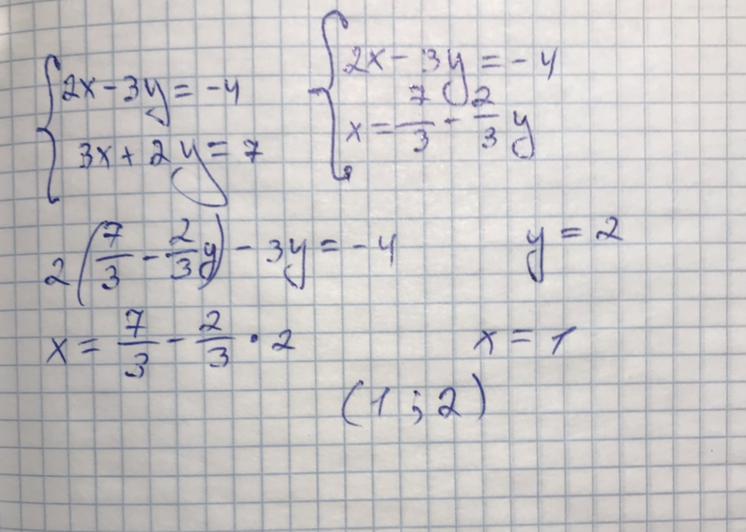 2x - 3y = -4
3x + 2y = 7
2x - 3y = -4
x = 7/3 - 2/3 y
2(7/3 - 2/3 y) - 3y = -4
y = 2
x = 7/3 - 2/3 · 2
x = 1
(1 ; 2)